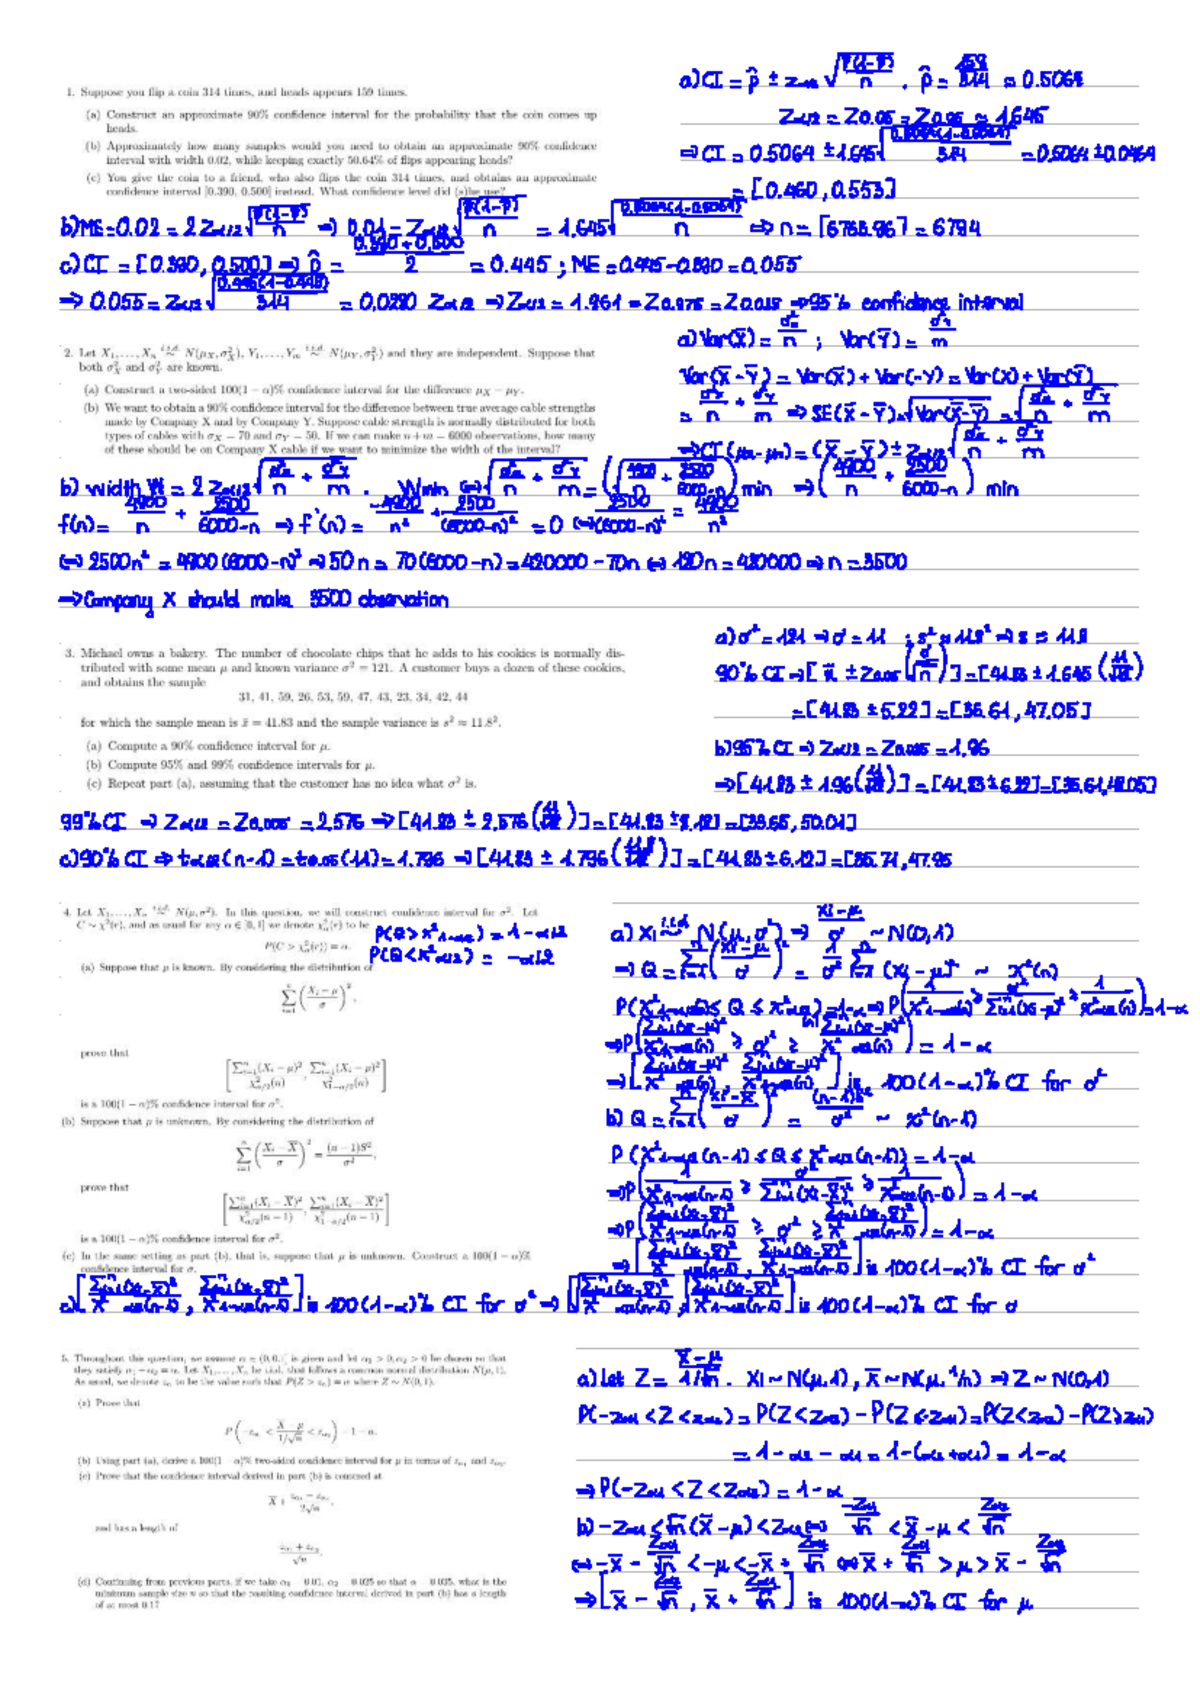 1. Suppose you flip a coin 314 times, and heads appears 159 times.
(a) Construct an approximate 90% confidence interval for the probability that the coin comes up
heads.
(b) Approximately how many samples would you need to obtain an approximate 90% confidence
interval with width 0.02, while keeping exactly 50.64% of flips appearing heads?
(c) You give the coin to a friend, who also flips the coin 314 times, and obtains an approximate
confidence interval [0.390, 0.500] instead. What confidence level did (s)he use?
a) CI = p̂ ± zα/2 √(p̂(1-p̂)/n) . p̂ = 159/314 = 0.5064
Zα/2 = Z0.05 = Z0.05 ≈ 1.645
⇒ CI = 0.5064 ± 1.645 √(0.5064(1-0.5064)/314) = 0.5064 ± 0.0464
= [0.460, 0.553]
b) ME = 0.02 = 2 Zα/2 √(p̂(1-p̂)/n) ⇒ 0.01 = Zα/2 √(p̂(1-p̂)/n) = 1.645 √(0.5064(1-0.5064)/n) ⇒ n = ⌈6763.96⌉ = 6764
c) CI = [0.390, 0.500] ⇒ p̂ = (0.390 + 0.500)/2 = 0.445 ; ME = 0.445 - 0.390 = 0.055
⇒ 0.055 = Zα/2 √(0.445(1-0.445)/314) = 0.0280 Zα/2 ⇒ Zα/2 = 1.961 = Z0.975 = Z0.025 ⇒ 95% confidence interval
2. Let X₁, …, Xₙ i.i.d. ~ N(μX, σ²X), Y₁, …, Yₘ i.i.d. ~ N(μY, σ²Y) and they are independent. Suppose that
both σ²X and σ²Y are known.
(a) Construct a two-sided 100(1 − α)% confidence interval for the difference μX − μY.
(b) We want to obtain a 90% confidence interval for the difference between true average cable strengths
made by Company X and by Company Y. Suppose cable strength is normally distributed for both
types of cables with σX = 70 and σY = 50. If we can make n + m = 6000 observations, how many
of these should be on Company X cable if we want to minimize the width of the interval?
a) Var(X̄) = σ²x/n ; Var(Ȳ) = σ²Y/m
Var(X̄ - Ȳ) = Var(X̄) + Var(-Y) = Var(X) + Var(Ȳ)
= σ²x/n + σ²Y/m ⇒ SE(X̄ - Ȳ) = √Var(X̄ - Ȳ) = √(σ²x/n + σ²Y/m)
b) Width W = 2 Zα/2 √(σ²x/n + σ²Y/m) . Wmin ⇔ √(σ²x/n + σ²Y/m) = (√(4900/n + 2500/(6000-n))) min ⇒ (4900/n + 2500/(6000-n)) min
f(n) = 4900/n + 2500/(6000-n) ⇒ f'(n) = -4900/n² + 2500/(6000-n)² = 0 ⇔ 2500/(6000-n)² = 4900/n²
⇔ 2500n² = 4900(6000-n)² ⇒ 50n = 70(6000-n) = 420000 - 70n ⇔ 120n = 420000 ⇒ n = 3500
⇒ Company X should make 3500 observation
3. Michael owns a bakery. The number of chocolate chips that he adds to his cookies is normally dis-
tributed with some mean μ and known variance σ² = 121. A customer buys a dozen of these cookies,
and obtains the sample
31, 41, 59, 26, 53, 59, 47, 43, 23, 34, 42, 44
for which the sample mean is x̄ = 41.83 and the sample variance is s² ≈ 11.8².
(a) Compute a 90% confidence interval for μ.
(b) Compute 95% and 99% confidence intervals for μ.
(c) Repeat part (a), assuming that the customer has no idea what σ² is.
a) σ² = 121 ⇒ σ = 11 ; s² ≈ 11.8² ⇒ s ≈ 11.8
90% CI ⇒ [x̄ ± Z0.05 (σ/√n)] = [41.83 ± 1.645 (11/√12)]
= [41.83 ± 5.22] = [36.61, 47.05]
b) 95% CI ⇒ Zα/2 = Z0.025 = 1.96
⇒ [41.83 ± 1.96 (11/√12)] = [41.83 ± 6.22] = [35.61, 48.05]
99% CI ⇒ Zα/2 = Z0.005 = 2.576 ⇒ [41.83 ± 2.576 (11/√12)] = [41.83 ± 8.18] = [33.65, 50.01]
c) 90% CI ⇒ tα/2 (n-1) = t0.05 (11) = 1.796 ⇒ [41.83 ± 1.796 (11.8/√12)] = [41.83 ± 6.12] = [35.71, 47.95
4. Let X₁, …, Xₙ i.i.d. ~ N(μ, σ²). In this question, we will construct confidence interval for σ². Let
C ~ χ²(r), and as usual for any α ∈ [0, 1] we denote χ²α(r) to be
P(C > χ²α(r)) = α.
P(Q > χ²1-α/2) = 1 - α/2
P(Q < χ²α/2) = -α/2
(a) Suppose that μ is known. By considering the distribution of
Σ ((Xᵢ − μ)/σ)²,
prove that
[Σ(Xᵢ − μ)²/χ²α/2(n), Σ(Xᵢ − μ)²/χ²1−α/2(n)]
is a 100(1 − α)% confidence interval for σ².
(b) Suppose that μ is unknown. By considering the distribution of
Σ ((Xᵢ − X̄)/σ)² = (n − 1)S²/σ²,
prove that
[Σ(Xᵢ − X̄)²/χ²α/2(n − 1), Σ(Xᵢ − X̄)²/χ²1−α/2(n − 1)]
is a 100(1 − α)% confidence interval for σ².
(c) In the same setting as part (b), that is, suppose that μ is unknown. Construct a 100(1 − α)%
confidence interval for σ.
a) Xi i.i.d. ~ N(μ, σ²) ⇒ (Xi - μ)/σ ~ N(0,1)
⇒ Q = Σ((Xi - μ)/σ)² = 1/σ² Σ(Xi - μ)² ~ χ²(n)
b) Q = Σ((Xi - X̄)/σ)² = (n-1)S²/σ² ~ χ²(n-1)
P(χ²1-α/2(n-1) ≤ Q ≤ χ²α/2(n-1)) = 1 - α
5. Throughout this question, we assume α ∈ (0, 0.] is given and let α₁ > 0, α₂ > 0 be chosen so that
they satisfy α₁ + α₂ = α. Let X₁, …, Xₙ be i.i.d. that follows a common normal distribution N(μ, 1).
As usual, we denote zα to be the value such that P(Z > zα) = α where Z ~ N(0, 1).
(a) Prove that
P(−zα₁ < (X̄ − μ)/(1/√n) < zα₂) = 1 − α.
(b) Using part (a), derive a 100(1 − α)% two-sided confidence interval for μ in terms of zα₁ and zα₂.
(c) Prove that the confidence interval derived in part (b) is centered at
X̄ + (zα₁ − zα₂)/(2√n),
and has a length of
(zα₁ + zα₂)/√n.
(d) Continuing from previous parts, if we take α₁ = 0.01, α₂ = 0.025 so that α = 0.035, what is the
minimum sample size n so that the resulting confidence interval derived in part (b) has a length
of at most 0.1?
a) let Z = (X̄ - μ)/(1/√n) . Xi ~ N(μ, 1), X̄ ~ N(μ, 1/n) ⇒ Z ~ N(0,1)
= 1 - α2 - α1 = 1 - (α1 + α2) = 1 - α
⇒ P(-Zα1 < Z < Zα2) = 1 - α
b) -Zα1 < √n(X̄ - μ) < Zα2 ⇔ -Zα1/√n < X̄ - μ < Zα2/√n
⇒ [X̄ - Zα2/√n, X̄ + Zα1/√n] is 100(1-α)% CI for μ